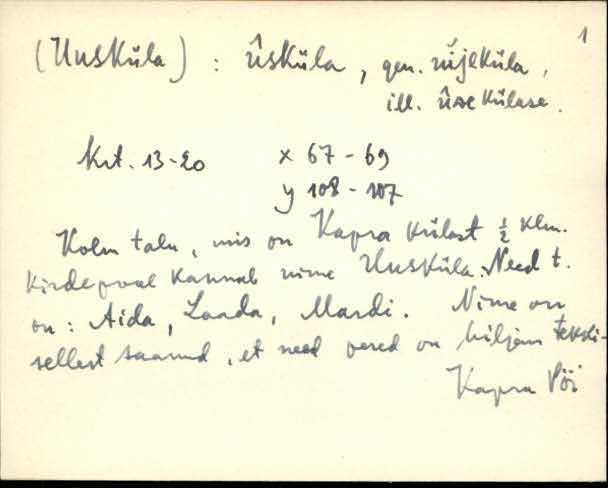 1
(Uusküla) : ûsküla, gen. ûjeküla,
ill. ûsekülase.
Krt. 13-20 x 67-69
y 108-107
Kolm talu, mis on Kapra külast ½ klm.
kirde pool kannab nime Uusküla. Need t.
on: Aida, Laada, Mardi. Nime on
sellest saanud, et need pered on hiljem tekki-
Kapra Pöi